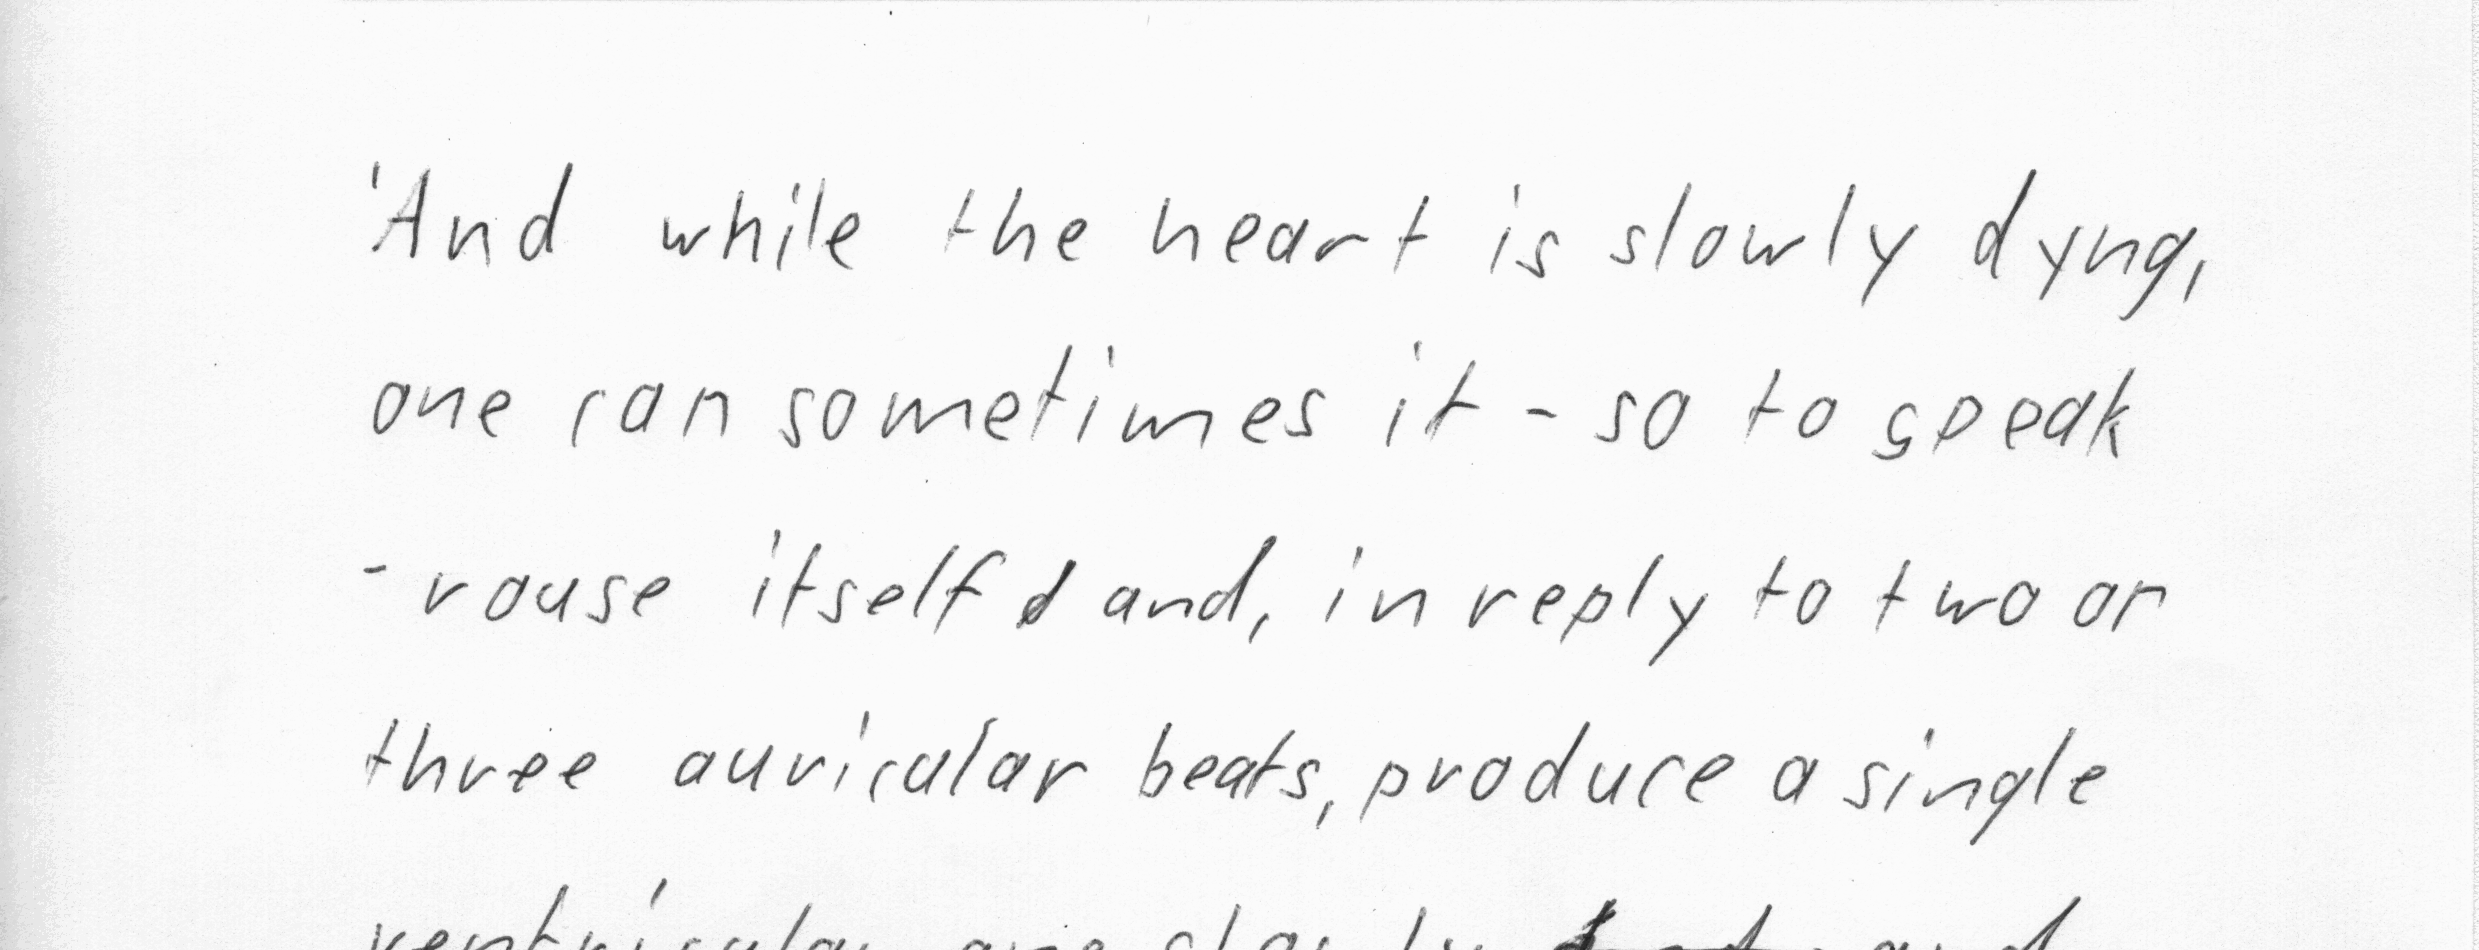 'And while the heart is slowly dyng,
one can sometimes it - so to speak
- rouse itself and, in reply to two or
three auricular beats, produce a single
ventricular one slowly and